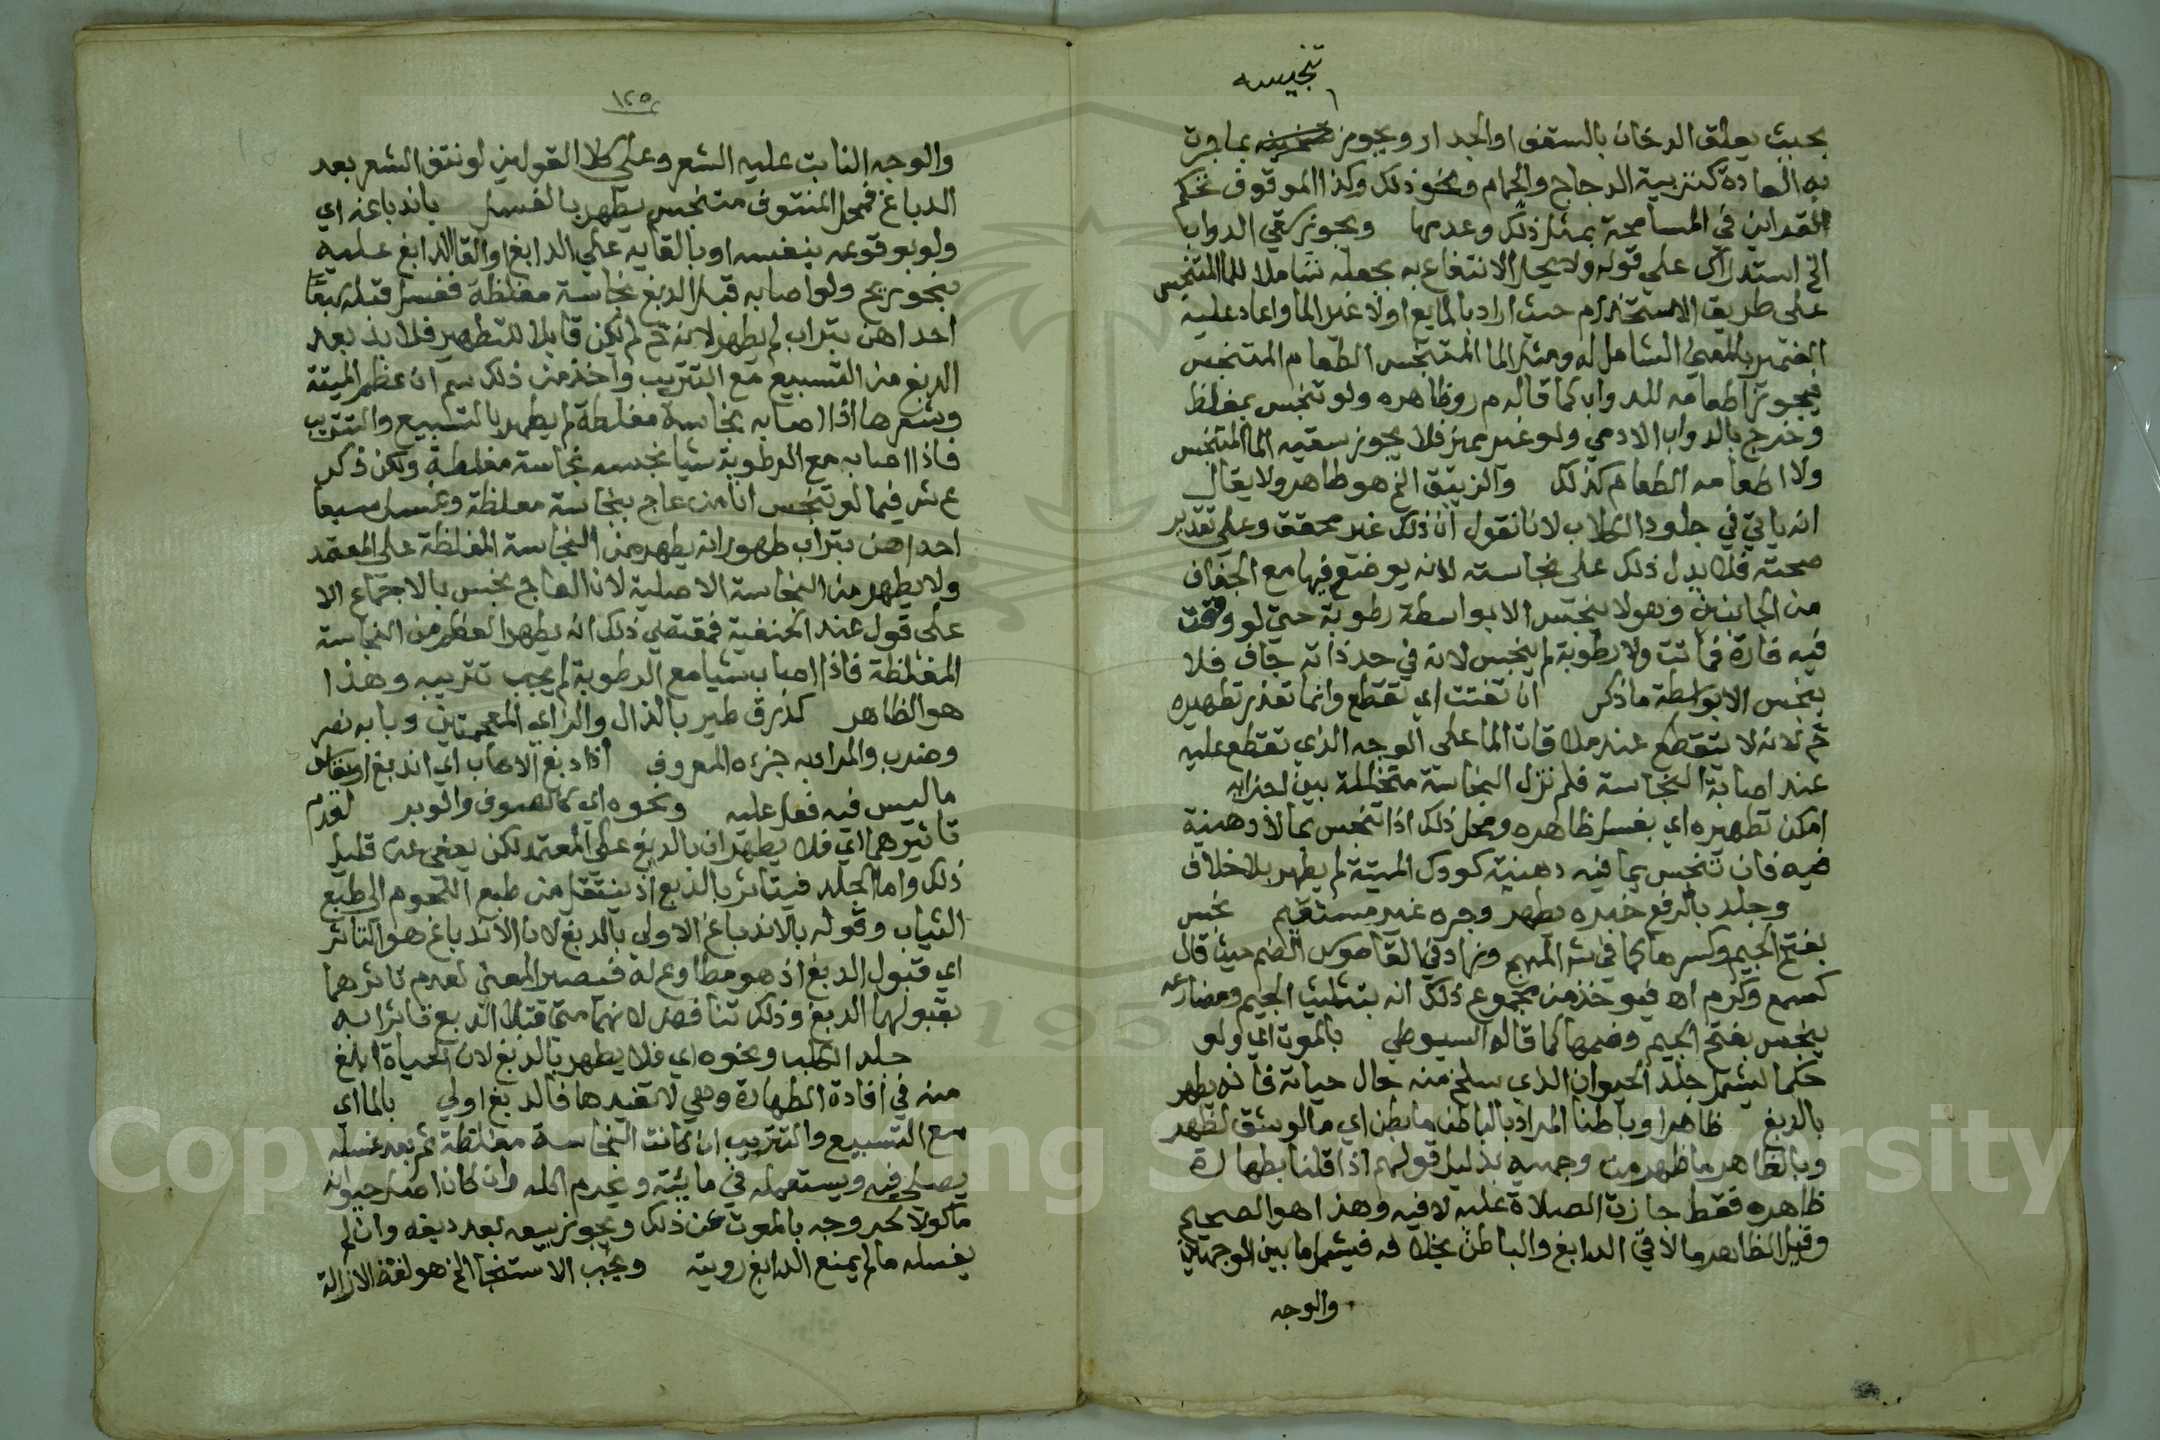 تنجيسه
بحيث يعلق الدخان بالسقف او الجدار ويجوز بما جرت
به العادة كتربية الدجاج والحمام ونحو ذلك وكذا الموقوف تحكم
القراين في المسامحة بمثل ذلك وعدمها ويجوز سقي الدواب
الخ استدراك على قوله ولا يحل الانتفاع به بجعله شاملا للما المتنجس
على طريق الاستخدام حيث اراد بالمايع اولا غير الما واعاد عليه
الضمير بالمعنى الشامل له ومثل الما المتنجس الطعام المتنجس
فيجوز اطعامه للدواب كما قاله م ر وظاهره ولو تنجس بمغلظ
وخرج بالدواب الادمي ولو غير مميز فلا يجوز سقيه الما المتنجس
ولا اطعامه الطعام كذلك والزيبق الخ هو طاهر ولا يقال
انه ياتي في جلود الكلاب لانا نقول ان ذلك غير محقق وعلى تقدير
صحته فلا يدل ذلك على نجاسته لانه يوضع فيها مع الجفاف
من الجانبين وهو لا ينجس الا بواسطة رطوبة حتى لو وقعت
فيه فارة فماتت ولا رطوبة لم ينجس لانه في حد ذاته جاف فلا
ينجس الا بواسطة ما ذكر ان تفتت اي تقطع وانما تعذر تطهيره
ح لانه لا يتقطع عند ملاقات الما على الوجه الذي تقطع عليه
عند اصابة النجاسة فلم تزل النجاسة متخللة بين اجزائه
امكن تطهيره اي بغسل ظاهره ومحل ذلك اذا تنجس بما لا دهنية
فيه فان تنجس بما فيه دهنية كودك الميتة لم يطهر بلا خلاف
وجلد بالرفع خبره يطهر وجره غير مستقيم نجس
بفتح الجيم وكسرها كما في شر المنهج وزاد في القاموس الضم حيث قال
كسمع وكرم اه فيوخذ من مجموع ذلك انه بتثليث الجيم ومضارعه
ينجس بفتح الجيم وضمها كما قاله السيوطي بالموت اي ولو
حكما ليشمل جلد الحيوان الذي سلخ منه حال حياته فانه يطهر
بالدبغ ظاهرا وباطنا المراد بالباطن ما بطن اي ما لو شق لظهر
وبالظاهر ما ظهر من وجهيه بدليل قولهم اذا قلنا بطهارة
ظاهره فقط جازت الصلاة عليه لا فيه وهذا هو الصحيح
وقيل الظاهر ما لاقى الدابغ والباطن بخلافه فيشمل ما بين الوجهين
والوجه
١٢٥
والوجه النابت عليه الشعر وعلى كلا القولين لو نتف الشعر بعد
الدباغ فمحل المنتوف متنجس يطهر بالغسل باندباغه اي
ولو بوقوعه بنفسه او بالقايه على الدابغ او القا الدابغ عليه
بنحو ريح ولو اصابه قبل الدبغ نجاسة مغلظة فغسل قبله سبعا
احداهن بتراب لم يطهر لانه ح لم يكن قابلا للتطهير فلا بد بعد
الدبغ من التسبيع مع التتريب واخذ من ذلك سم ان عظم الميتة
وشعرها اذا اصابه نجاسة مغلظة لم يطهر بالتسبيع والتتريب
فاذا اصابه مع الرطوبة شيا نجسه نجاسة مغلظة ولكن ذكر
ع ش فيما لو تنجس انا من عاج بنجاسة مغلظة وغسل سبعا
احداهن بتراب طهور انه يطهر من النجاسة المغلظة على المعتمد
ولا يطهر من النجاسة الاصلية لان العاج نجس بالاجماع الا
على قول عند الحنفية فمقتضى ذلك انه يطهر العظم من النجاسة
المغلظة فاذا اصاب شيا مع الرطوبة لم يجب تتريبه وهذا
هو الظاهر كذرق طير بالذال والزاي المعجمتين وبابه نصر
وضرب والمراد به جزءه المعروف اذا دبغ الاهاب اي اندبغ
ما ليس فيه فعل عليه ونحوه اي كالصوف والوبر لعدم
تاثيرهما اي فلا يطهران بالدبغ على المعتمد لكن يعفى عن قليل
ذلك واما الجلد فيتاثر بالدبغ اذ ينتقل من طبع اللحوم الى طبع
الثياب وقوله بالاندباغ الاولى بالدبغ لان الاندباغ هو التاثر
اي قبول الدبغ اذ هو مطاوع له فيصير المعنى لعدم تاثرهما
بقبولهما الدبغ وذلك تناقض لانهما متى قبلا الدبغ تاثرا به
جلد الكلب ونحوه اي فلا يطهر بالدبغ لان الحياة ابلغ
منه في افادة الطهارة وهي لا تفيدها فالدبغ اولى بالما اي
مع التسبيع والتتريب ان كانت النجاسة مغلظة ثم بعد غسله
يصلي فيه ويستعمله في مايته ويحرم اكله وان كان اصله حيوانه
ماكولا لخروجه بالموت عن ذلك ويجوز بيعه بعد دبغه وان لم
يغسله ما لم يمنع الدابغ رويته ويجب الاستنجا الخ هو لغة الازالة
Copyright © King Saud University
1957